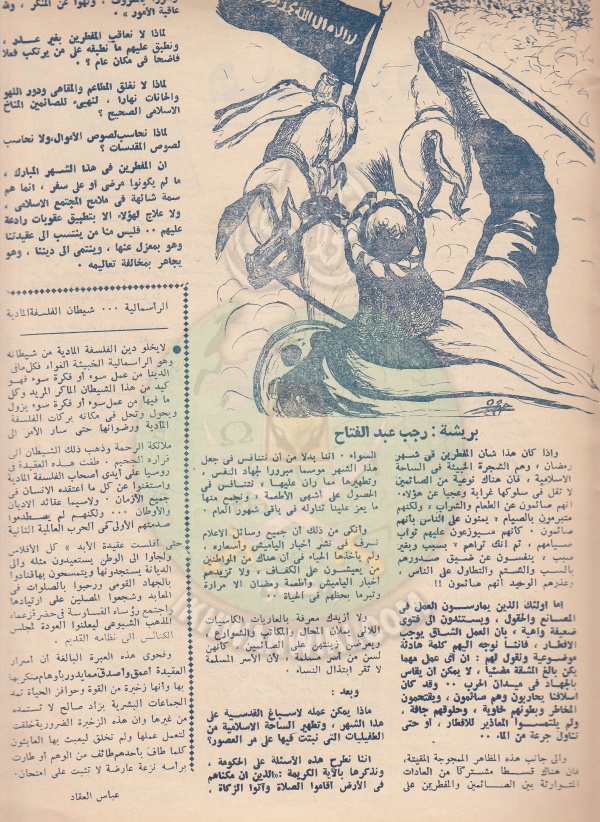 عاقبة الأمور » .
لماذا لا نعاقب المفطرين بغير عذر ،
ونطبق عليهم ما نطبقه على من يرتكب فعلا
فاضحا في مكان عام ؟ .
لماذا لا نغلق المطاعم والمقاهى ودور اللهو
والحانات نهارا ، لنهيىء للصائمين المناخ
الاسلامى الصحيح ؟
لماذا نحاسب لصوص الأموال، ولا نحاسب
لصوص المقدسات ؟
ان المفطرين في هذا الشهر المبارك ،
ما لم يكونوا مرضى أو على سفر ، انما هم
سمة شائهة في ملامح المجتمع الاسلامى ،
ولا علاج لهؤلاء الا بتطبيق عقوبات رادعة
عليهم .. فليس منا من ينتسب الى عقيدتنا
وهو بمعزل عنها ، وينتمى الى ديننا ، وهو
يجاهر بمخالفة تعاليمه .
لا اله الا الله محمد رسول الله
بريشة : رجب عبد الفتاح
واذا كان هذا شأن المفطرين في شهر
رمضان ، وهم الشجرة الخبيثة في الساحة
الاسلامية ، فان هناك نوعية من الصائمين
لا تقل في سلوكها غرابة وعجبا عن هؤلاء.
انهم صائمون عن الطعام والشراب ، ولكنهم
متبرمون بالصيام ، يمنون على الناس بأنهم
صائمون . كأنهم سيوزعون عليهم ثواب
صيامهم ، ثم انك تراهم ، بسبب وبغير
سبب ، ينفسون عن ضيق صدورهم
بالسب والشتم والتطاول على الناس .
وعذرهم الوحيد أنهم صائمون !!
اما اولئك الذين يمارسون العمل في
المصانع والحقول ، ويستندون الى فتوى
ضعيفة واهية ، بأن العمل الشاق يوجب
الافطار ، فاننا نوجه اليهم كلمة هادئة
موضوعية ونقول لهم : ان أى عمل مهما
يكن بالغ المشقة مضنيا ، لا يمكن أن يقاس
بالجهاد في ميدان الحرب .. وقد كان
أسلافنا يحاربون وهم صائمون ، ويقتحمون
المخاطر وبطونهم خاوية ، وحلوقهم جافة ،
ولم يلتمسوا المعاذير للافطار ، أو حتى
تناول جرعة من الماء ..
والى جانب هذه المظاهر الممجوجة المقيتة،
فان هناك قسطا مشتركا من العادات
المتوارثة بين الصائمين والمفطرين على
السواء . اننا بدلا من أن نتنافس في جعل
هذا الشهر موسما مبرورا لجهاد النفس ،
وتطهيرها مما ران عليها ، نتنافس في
الحصول على أشهى الأطعمة ، ونجمع منها
ما يعز علينا تناوله في باقى شهور العام .
وأنكى من ذلك أن جميع وسائل الاعلام
تسرف في نشر أخبار الياميش وأسعاره ،
ولم يأخذها الحياء في أن هناك من المواطنين
من يعيشون على الكفاف ، ولا تزيدهم
أخبار الياميش وأطعمة رمضان الا مرارة
وتبرما بحظهم في الحياة ..
ولا أزيدك معرفة بالعاريات الكاسيات
اللائى يملأن المحال والمكاتب والشوارع ،
ويعرضن زينتهن على الصائمين ، كأنهن
لسن من أسر مسلمة ، لأن الأسر المسلمة
لا تقر ابتذال النساء .
وبعد :
ماذا يمكن عمله لاسباغ القدسية على
هذا الشهر ، وتطهير الساحة الاسلامية من
الطفيليات التى نبتت فيها على مر العصور؟
اننا نطرح هذه الأسئلة على الحكومة ،
ونذكرها بالآية الكريمة : «الذين ان مكناهم
في الأرض أقاموا الصلاة وآتوا الزكاة ،
الرأسمالية ... شيطان الفلسفة المادية
لايخلو دين الفلسفة المادية من شيطانه
وهو الرأسمالية الخبيثة الغواء فكل ما في
الدنيا من عمل سوء أو فكرة سوء فهو
كيد من هذا الشيطان الماكر المريد وكل
ما فيها من عمل سوء أو فكرة سوء يزول
ويحول وتحل في مكانه بركات الفلسفة
المادية ورضوانها حتى سار الأمر الى
ملائكة الرحمة وذهب ذلك الشيطان الى
قراره الجحيم . طغت هذه العقيدة في
روسيا على أيدى أصحاب الفلسفة المادية
واستغنوا عن كل ما اعتقده الانسان في
جميع الأزمان . ولاسيما عقائد الأديان
والأوطان ... ولكنهم لم يصطدموا
صدمتهم الأولى في الحرب العالمية الثانية
حتى أفلست عقيدة الأبد » كل الافلاس
ولجأوا الى الوطن يستعيدون مثله والى
الديانة يستنجدونها ويتمسحون بها فنادوا
بالجهاد القومى ورحبوا بالصلوات في
المعابد وشجعوا المصلين على ارتيادها
واجتمع رؤساء القساوسة في حضرة زعماء
المذهب الشيوعى ليعلنوا العودة لمجلس
الكنائس الى نظامه القديم .
وفحوى هذه العبرة البالغة أن أسرار
العقيدة أعمق وأصدق مما يدور بأوهام منكريها
بها وأنها ذخيرة من القوة وحوافز الحياة تمد
الجماعات البشرية بزاد صالح لا تستمده
من غيرها وان هذه الذخيرة الضرورية خلقت
لتعمل عملها ولم تخلق ليعبث بها العابثون
كلما طاف بأحدهم طائف من الوهم أو طارت
برأسه نزعة عارضة لا تثبت على امتحان .
عباس العقاد